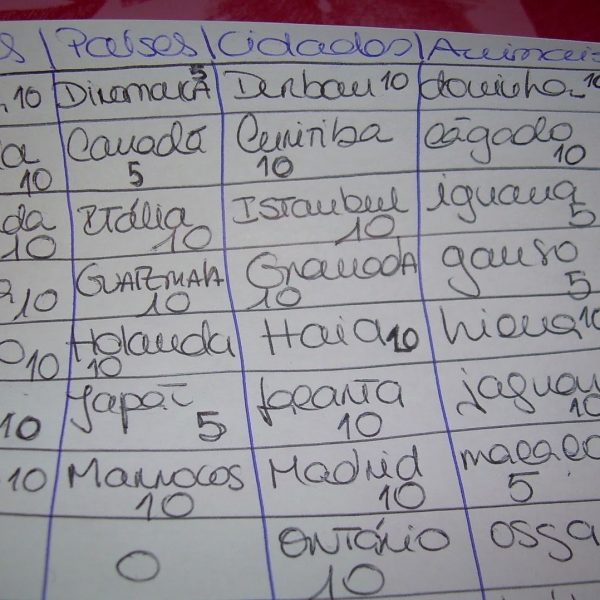 s Países Cidades Animais
10 Dinamarca 5 Durban 10 doninha 10
a 10 Canadá 5 Curitiba 10 cágado 10
da 10 Itália 10 Istanbul 10 iguana 5
10 Guatemala 10 Granada 10 ganso 5
o 10 Holanda 10 Haia 10 hiena 10
10 Japão 5 Jacarta 10 jaguar 10
10 Marrocos 10 Madrid 10 macaco 5
0 Ontário 10 ossa